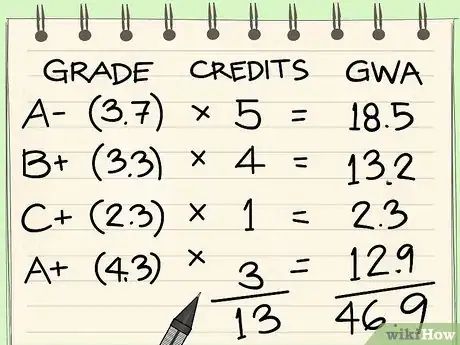 GRADE CREDITS GWA
A- (3.7) × 5 = 18.5
B+ (3.3) × 4 = 13.2
C+ (2.3) × 1 = 2.3
A+ (4.3) × 3 = 12.9
13 46.9
wikiHow